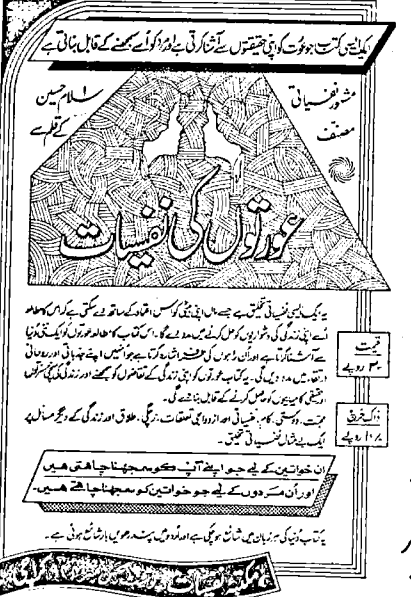 ایک ایسی کتاب جو عورت کو اپنی حقیقتوں سے آشنا کرتی ہے اور مرد کو اُسے سمجھنے کے قابل بناتی ہے
مشہور نفسیاتی
مصنف
اسلام حسین
کے قلم سے
عورتوں کی نفسیات
یہ ایک ایسی نفسیاتی تخلیق ہے جسے ماں اپنی بیٹی کو اس اعتماد کے ساتھ دے سکتی ہے کہ اس کا مطالعہ
اُسے اپنی زندگی کی دشواریوں کو حل کرنے میں مدد دے گا۔ اس کتاب کا مطالعہ عورتوں کو ایک نئی دُنیا
سے آشنا کرتا ہے اور اُن راہوں کی طرف اشارہ کرتا ہے جو انہیں اپنے جذباتی اور روحانی
ارتقا میں مدد دیں گی۔ یہ کتاب عورتوں کو اپنی زندگی کے تقاضوں کو سمجھنے اور زندگی کی سچی مسرتوں
اور حقیقی کامیابیوں کو حاصل کرنے کے قابل بنا دے گی۔
محبت، دوستی، کام، نفسیاتی اور ازدواجی تعلقات، زچگی، طلاق اور زندگی کے دیگر مسائل پر
ایک بے مثال نفسیاتی تخلیق۔
قیمت
روپے
ڈاک خرچ
روپے
ان خواتین کے لیے جو اپنے آپ کو سمجھنا چاہتی ہیں
اور اُن مردوں کے لیے جو خواتین کو سمجھنا چاہتے ہیں۔
یہ کتاب دُنیا کی ہر زبان میں شائع ہو چکی ہے اور اُردو میں پندرھویں بار شائع ہوئی ہے۔
مکتبہ نفسیات
کراچی